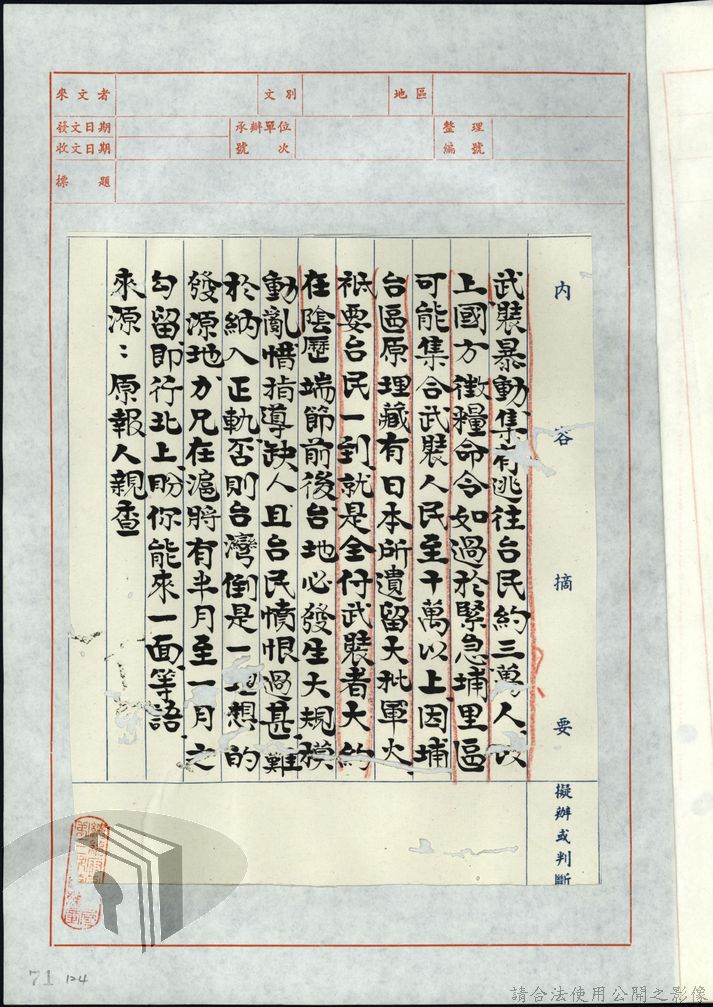 來文者 文別 地區
發文日期 承辦單位 整理
收文日期 號次 編號
標題
內容摘要
武裝暴動集有逃往台民約三萬人設
上國方徵糧命令如過於緊急埔里區
可能集合武裝人民至十萬以上因埔
台區原埋藏有日本所遺留大批軍火
祇要台民一到就是全付武裝者大約
在陰歷端節前後台地必發生大規模
動亂惜指導缺人且台民憤恨過甚難
於納入正軌否則台灣倒是一理想的
發源地力兄在滬將有半月至一月之
勾留即行北上盼你能來一面等語
來源：原報人親查
擬辦或判斷
71 124
請合法使用公開之影像